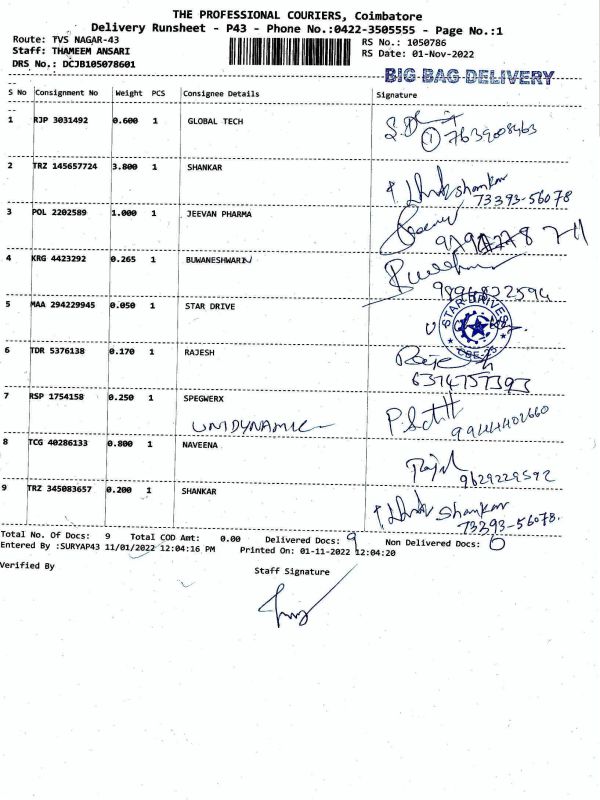 THE PROFESSIONAL COURIERS, Coimbatore
Delivery Runsheet - P43 - Phone No.:0422-3505555 - Page No.:1
Route: TVS NAGAR-43
RS No.: 1050786
Staff: THAMEEM ANSARI
RS Date: 01-Nov-2022
DRS No.: DCJB105078601
BIG BAG DELIVERY
S No Consignment No Weight PCS Consignee Details Signature
1 RJP 3031492 0.600 1 GLOBAL TECH
1 7639008463
2 TRZ 145657724 3.800 1 SHANKAR
shankar
73393-56078
3 POL 2202589 1.000 1 JEEVAN PHARMA
4 KRG 4423292 0.265 1 BUWANESHWARI
5 MAA 294229945 0.050 1 STAR DRIVE
STAR DRIVES
CBE-25
6 TDR 5376138 0.170 1 RAJESH
6374757393
7 RSP 1754158 0.250 1 SPEGWERX
UNIDYNAMIC
9944402660
8 TCG 40286133 0.800 1 NAVEENA
9629229592
9 TRZ 345083657 0.200 1 SHANKAR
shankar
73393-56078.
Total No. Of Docs: 9 Total COD Amt: 0.00 Delivered Docs: 9 Non Delivered Docs: 0
Entered By :SURYAP43 11/01/2022 12:04:16 PM Printed On: 01-11-2022 12:04:20
Verified By
Staff Signature